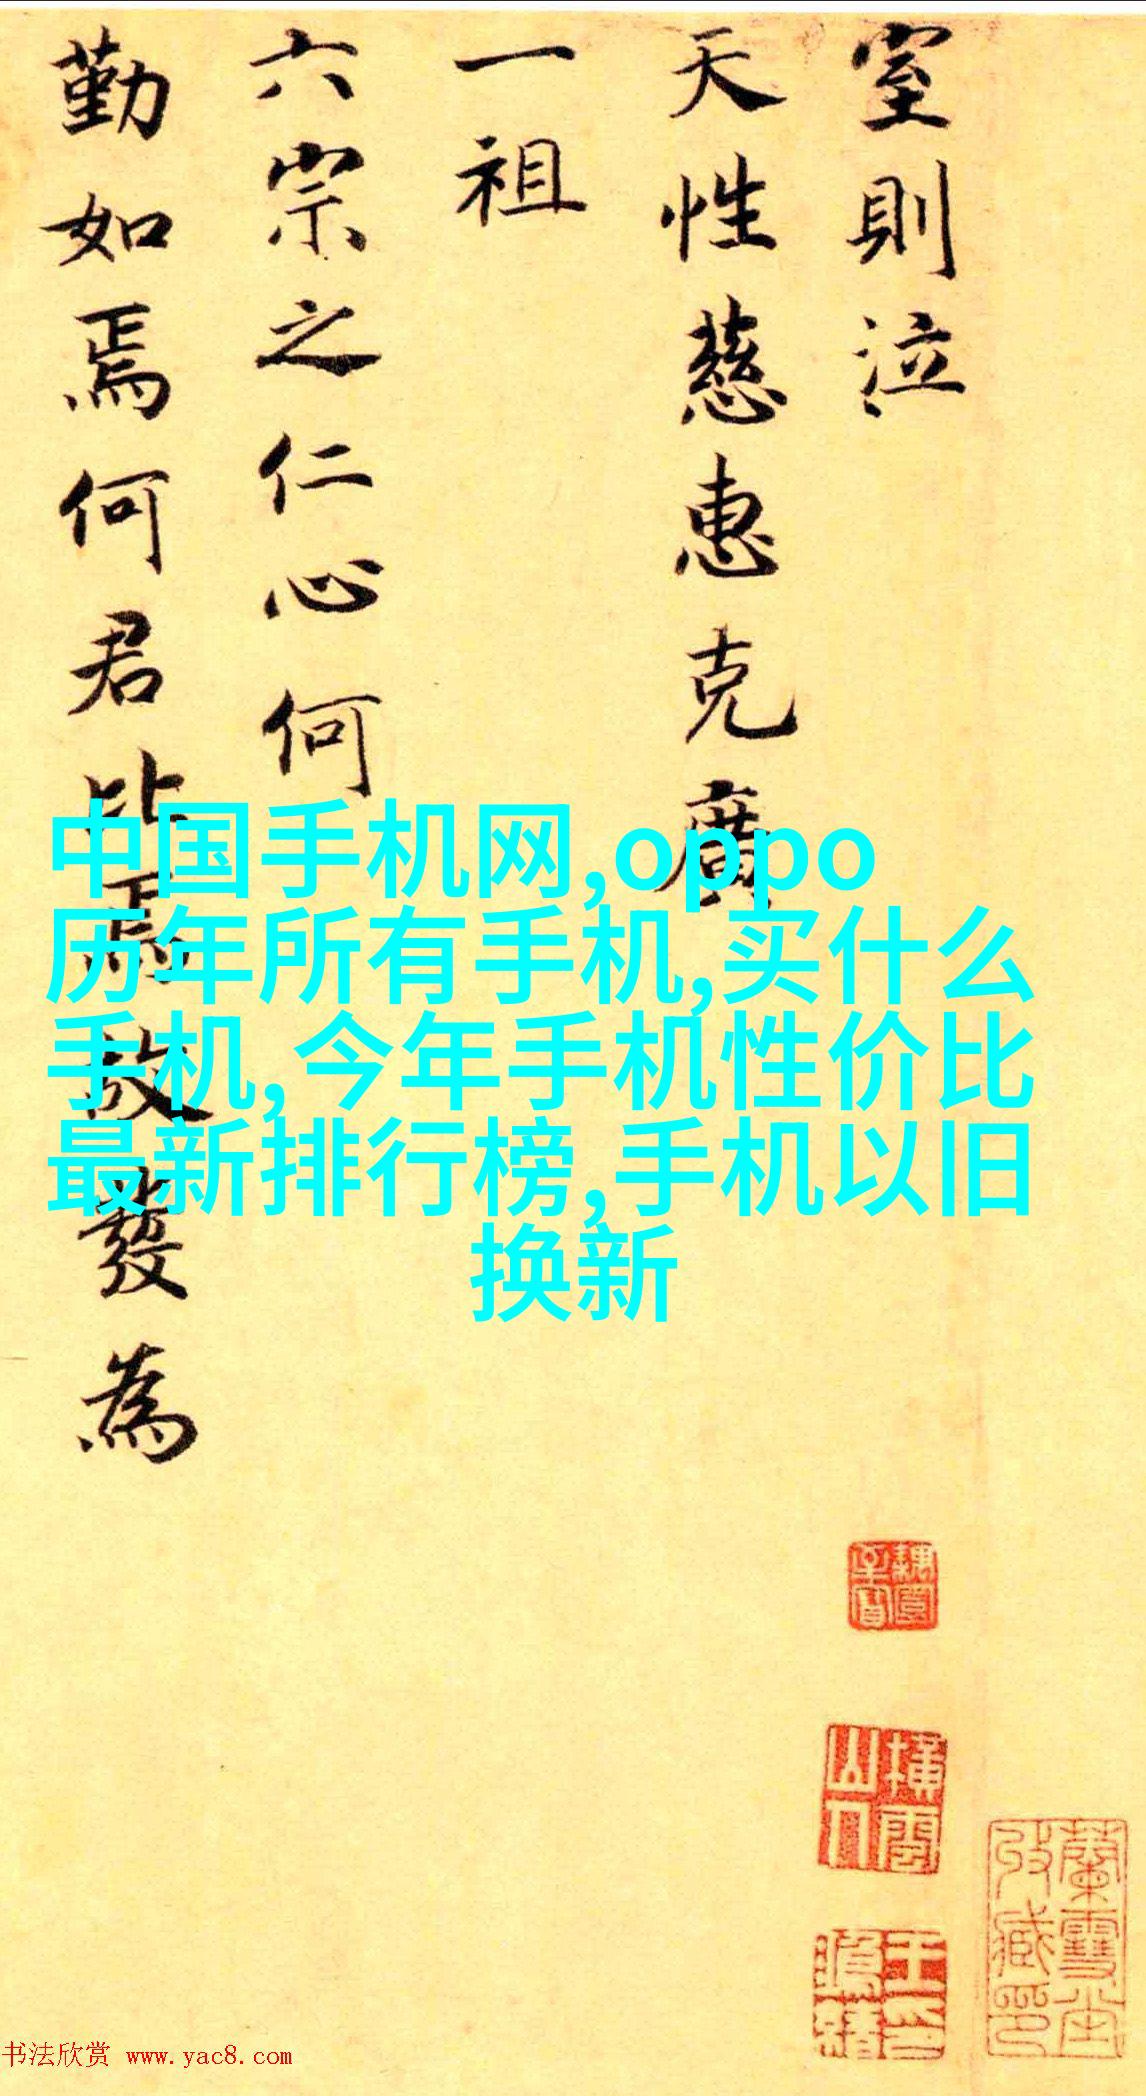 室則泣
天性慈惠克廣
一祖
六宗之仁心何
勤如焉何君比焉敬發為
中国手机网,oppo
历年所有手机,买什么
手机,今年手机性价比
最新排行榜,手机以旧
换新
书法欣赏 www.yac8.com